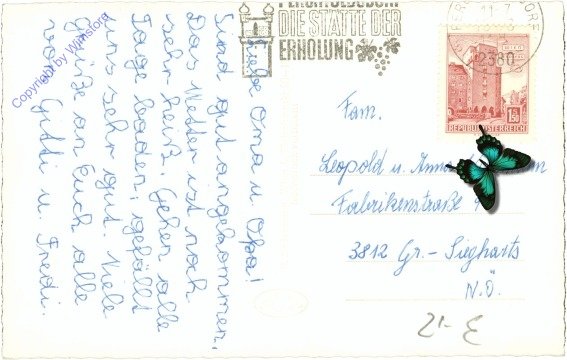 Liebe Oma u. Opa!
Sind gut angekommen.
Das Wetter ist noch
sehr heiß. Gehen alle
Tage baden, gefällt
uns sehr gut. Viele
Grüße an Euch alle
von Gitti u. Fredi.
Copyright by Wimsfora
PERCHTOLDSDORF
DIE STÄTTE DER
ERHOLUNG
2380
1.50
REPUBLIK ÖSTERREICH
Fam.
Leopold u.
Fabrikenstraße
3812 Gr.-Siegharts
N.Ö.